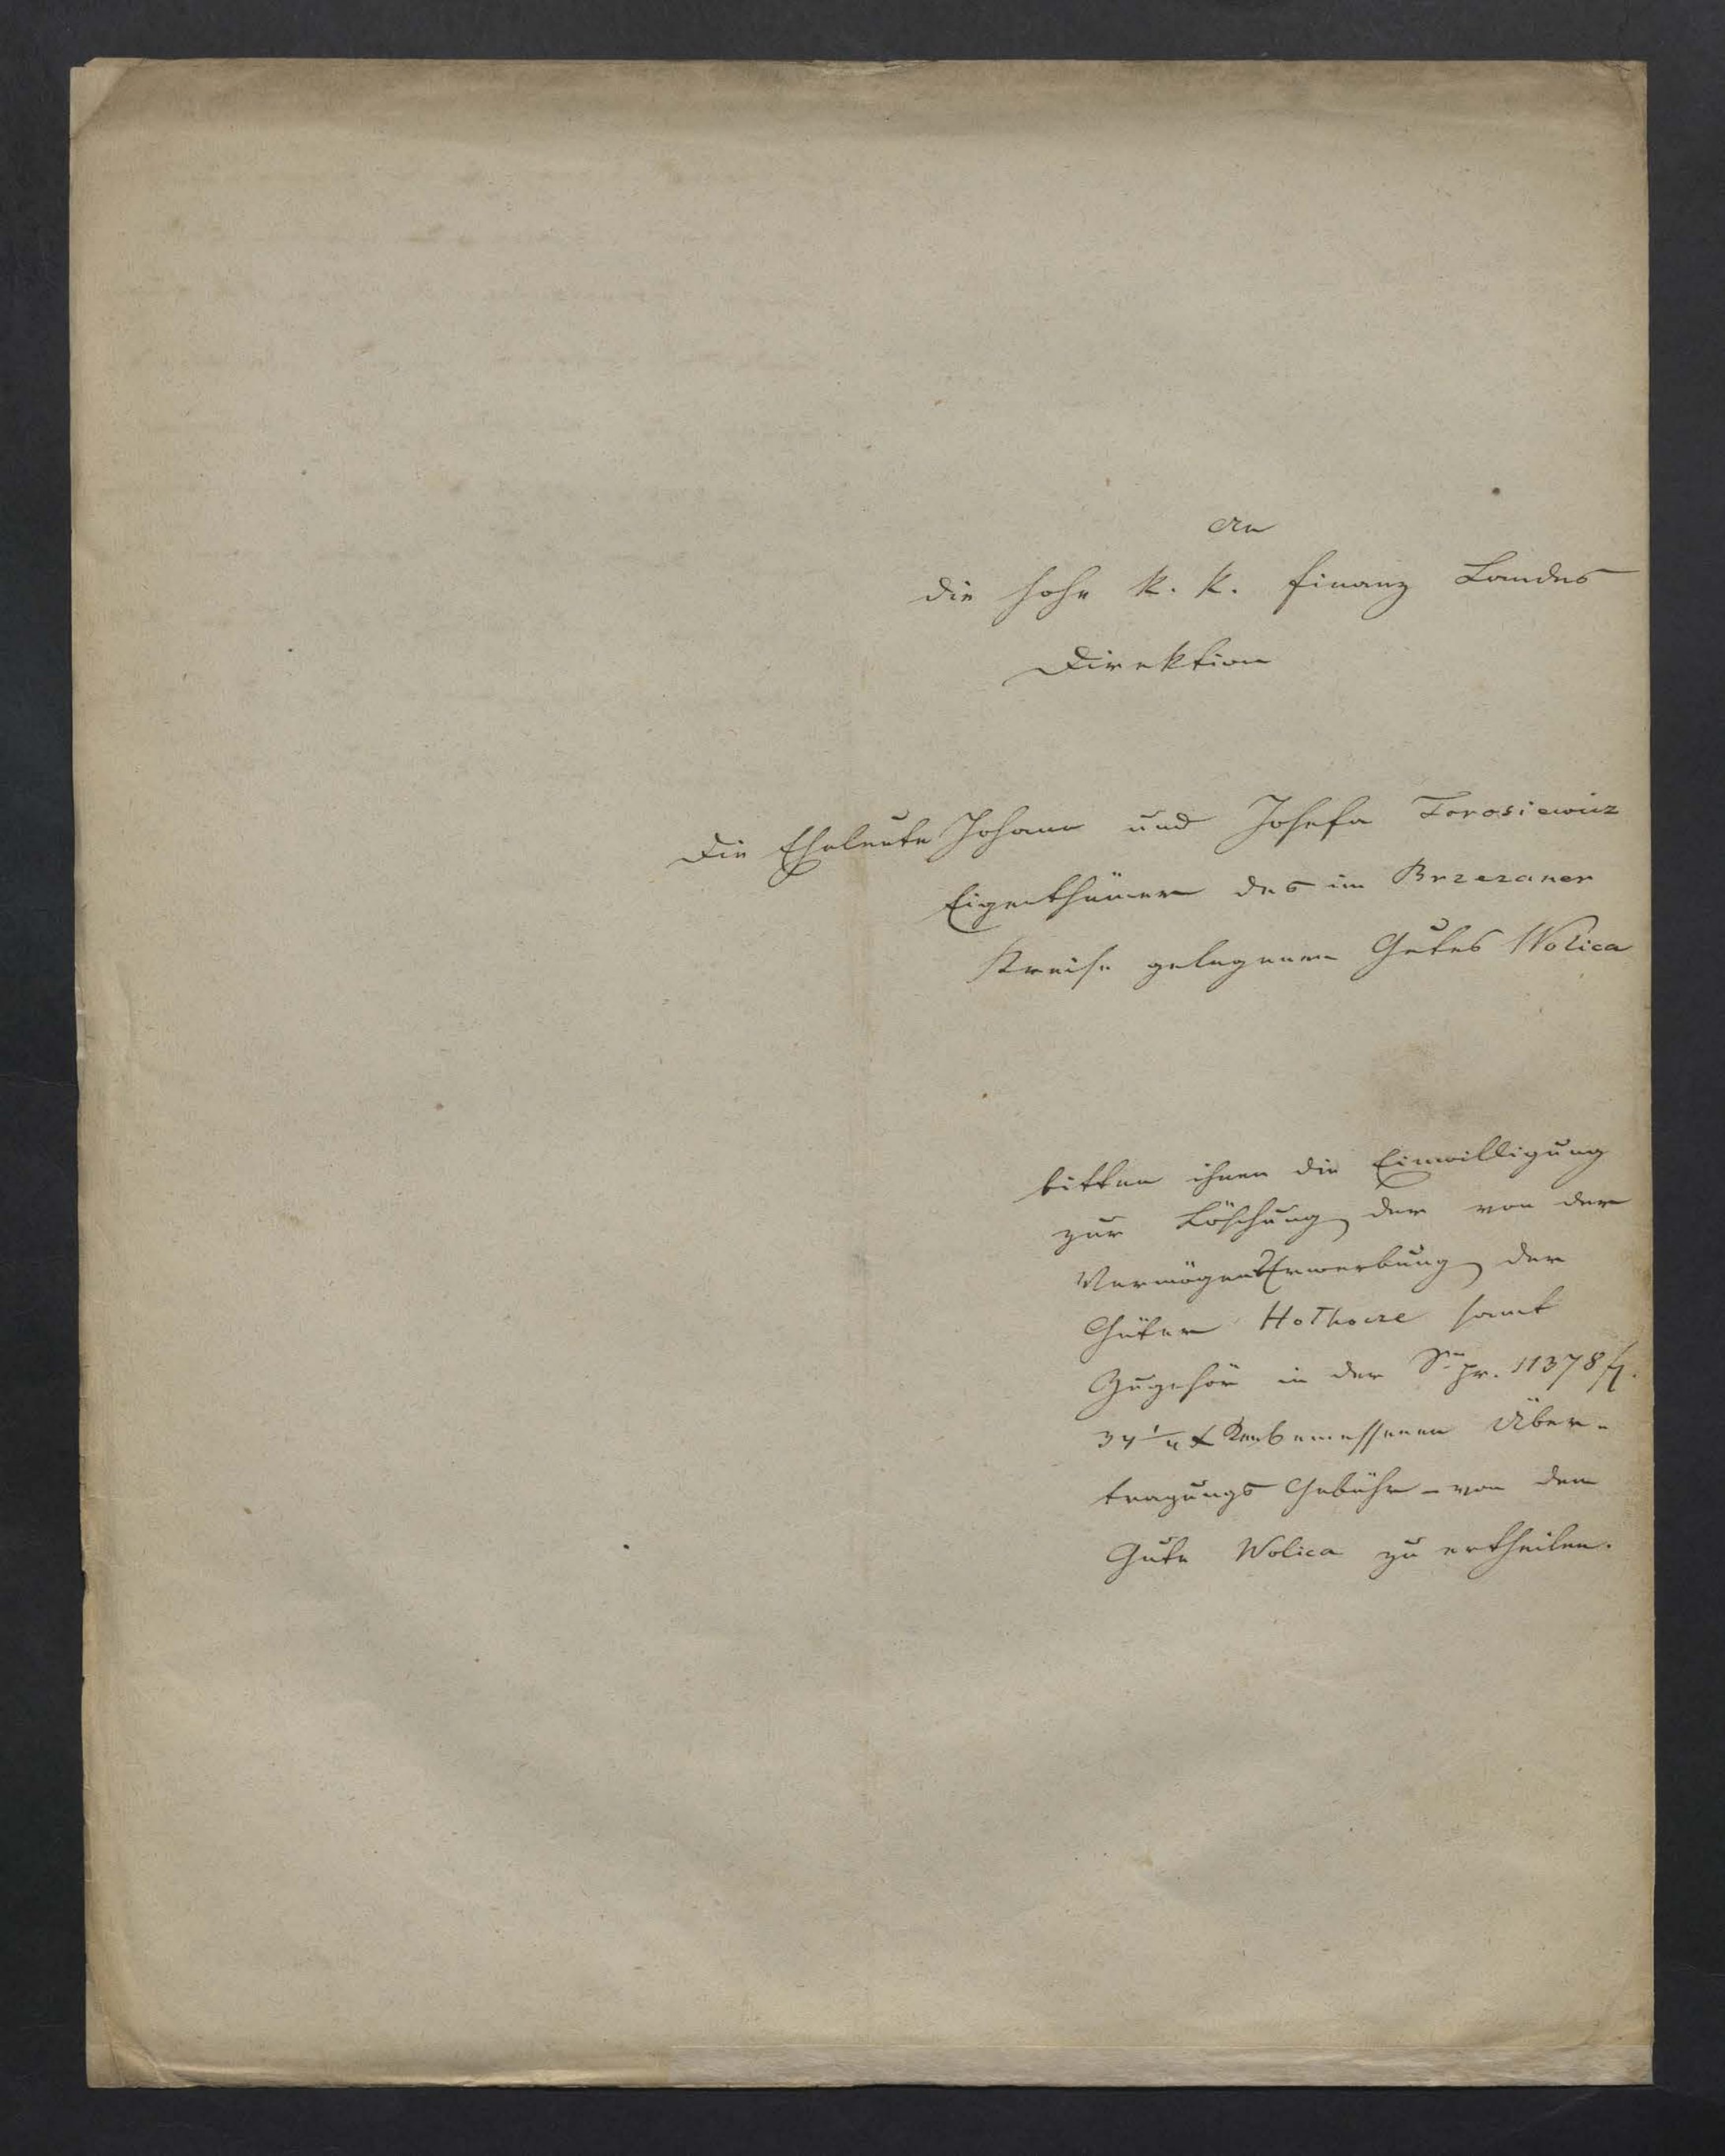 An
die hohe k. k. Finanz Landes
Direktion
Die Eheleute Johann und Josefa Torosiewicz
Eigenthümer des im Brzezaner
Kreise gelegenen Gutes Wolica
bitten ihnen die Einwilligung
zur Löschung der von der
Vermögens Erwerbung der
Güter Hołhocze samt
Zugehör in der pr. 11378 f.
34 1/4 x bemessenen Über-
tragungs Gebühr - von dem
Gute Wolica zu ertheilen.